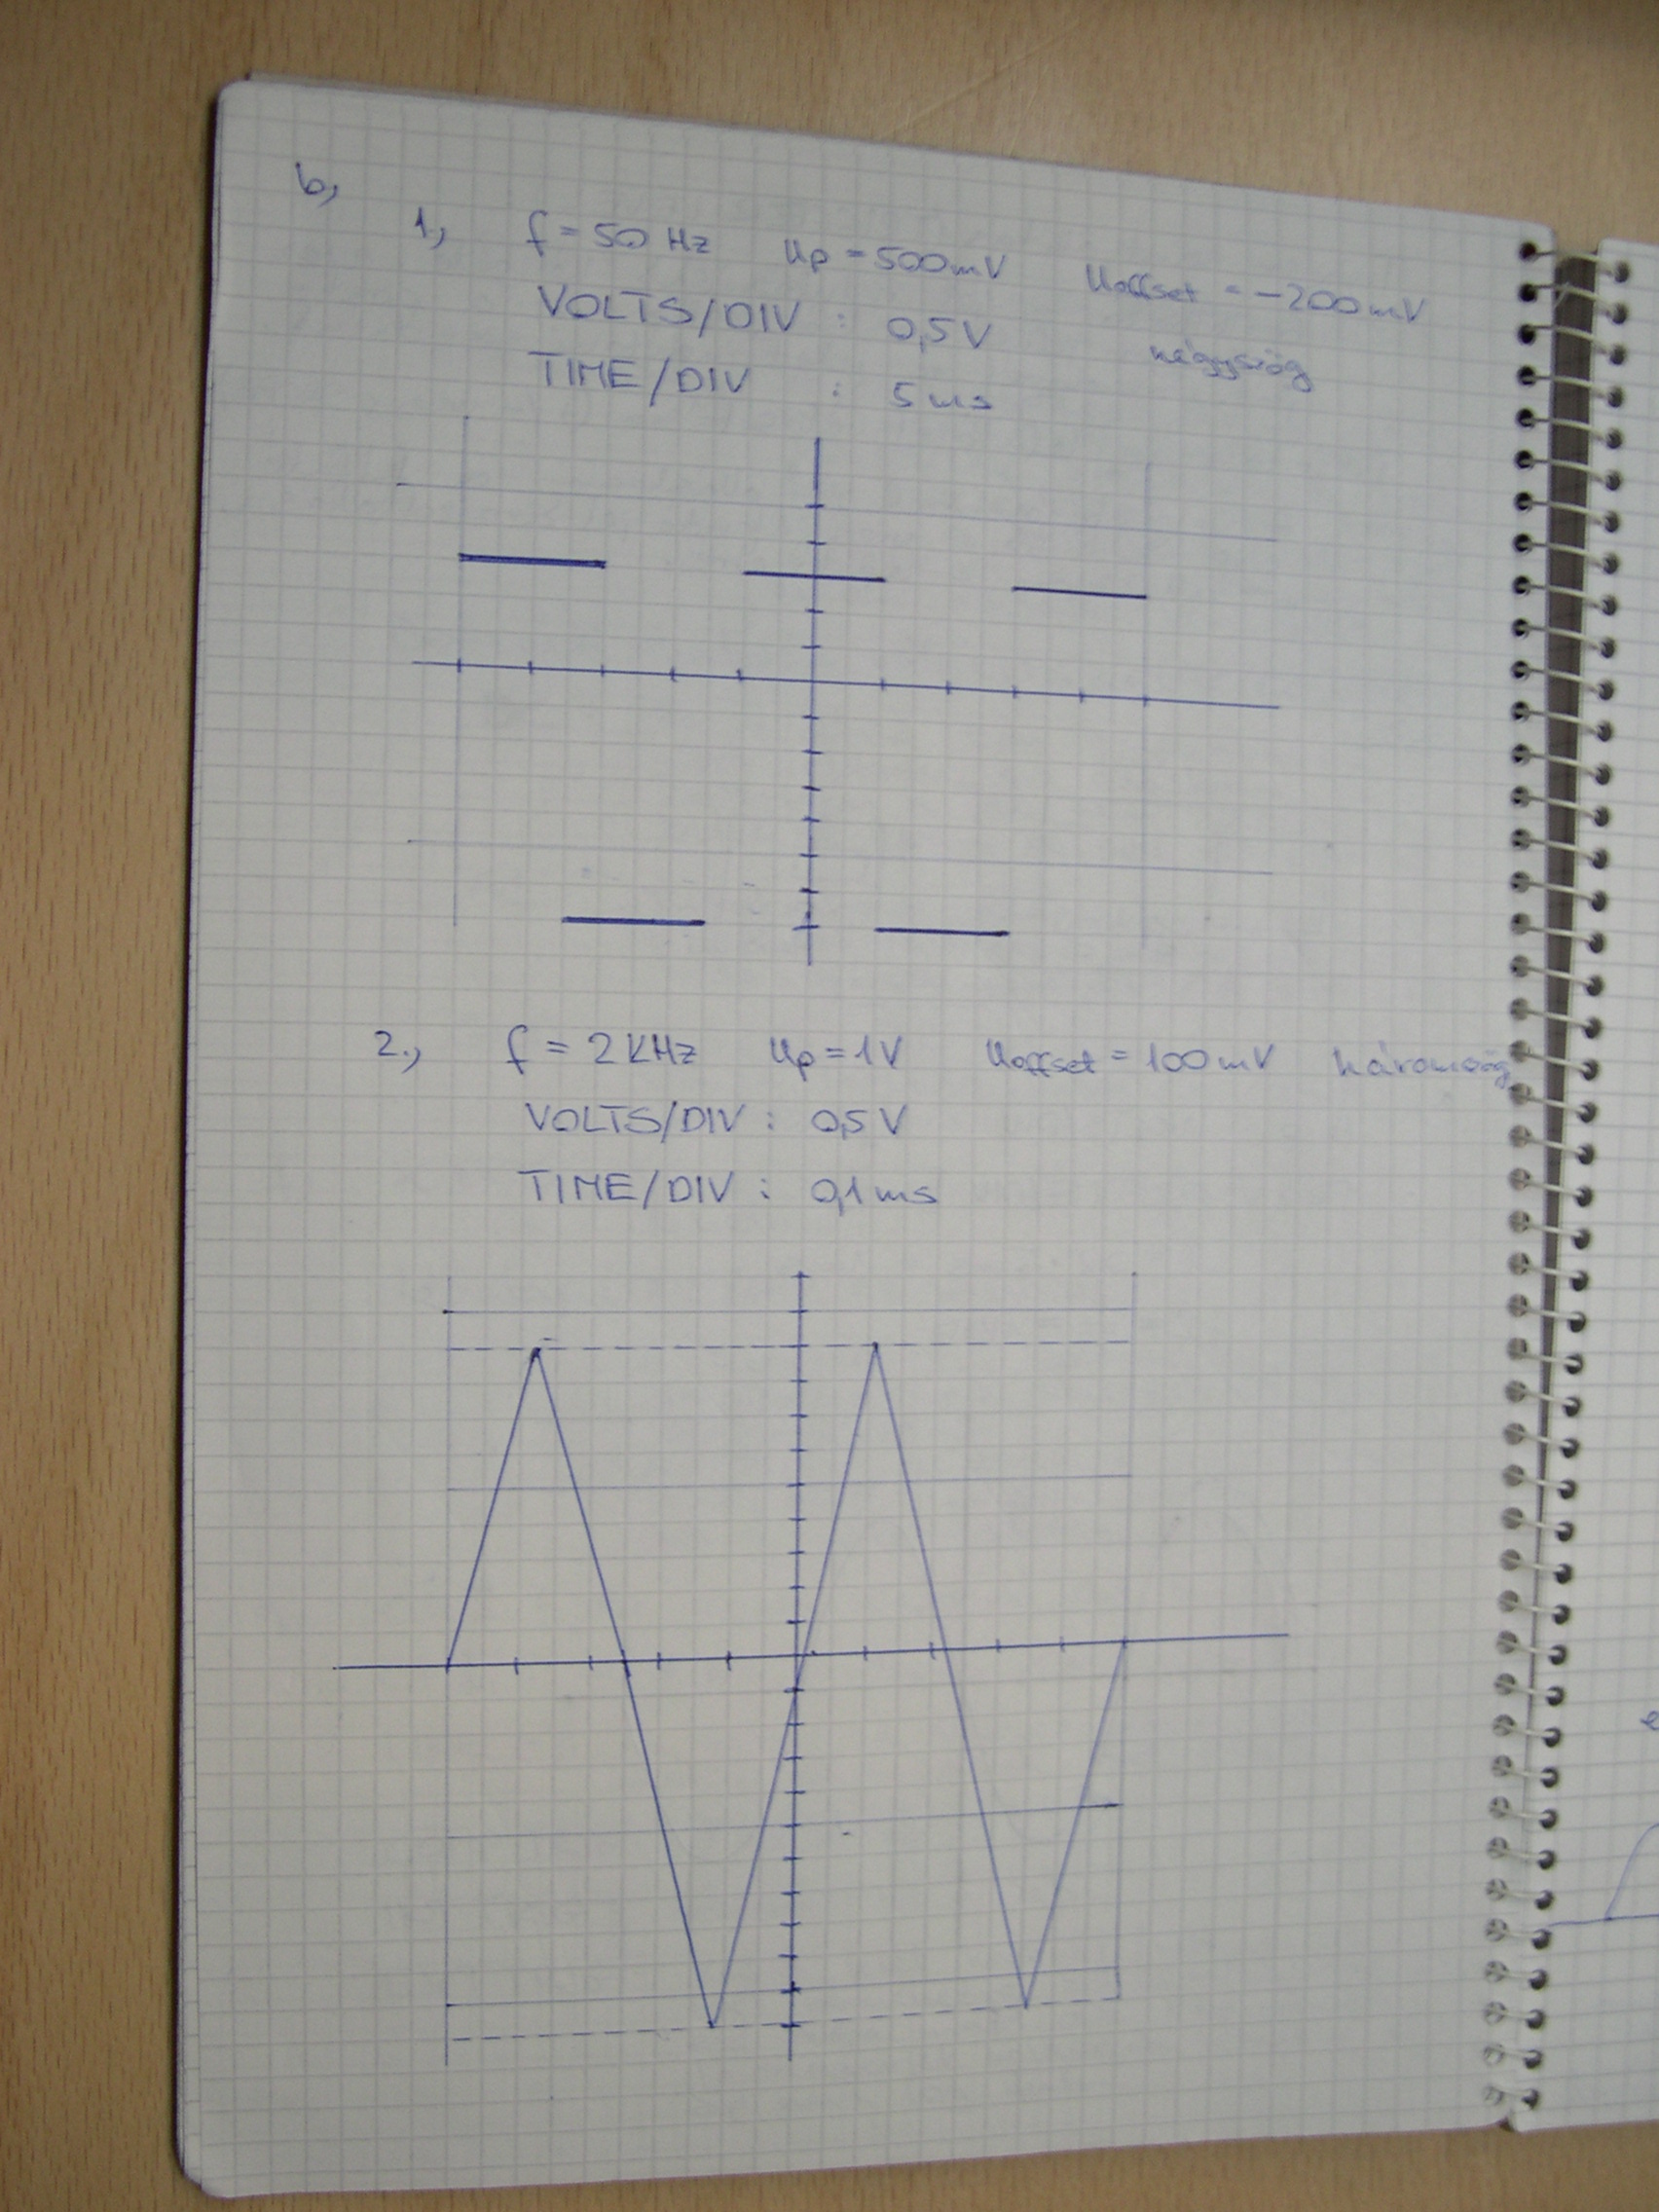 b,
1, f = 50 Hz Up = 500mV Uoffset = -200mV
VOLTS/DIV : 0,5V négyszög
TIME/DIV : 5ms
2., f = 2KHz Up = 1V Uoffset = 100mV háromszög
VOLTS/DIV : 0,5V
TIME/DIV : 0,1ms